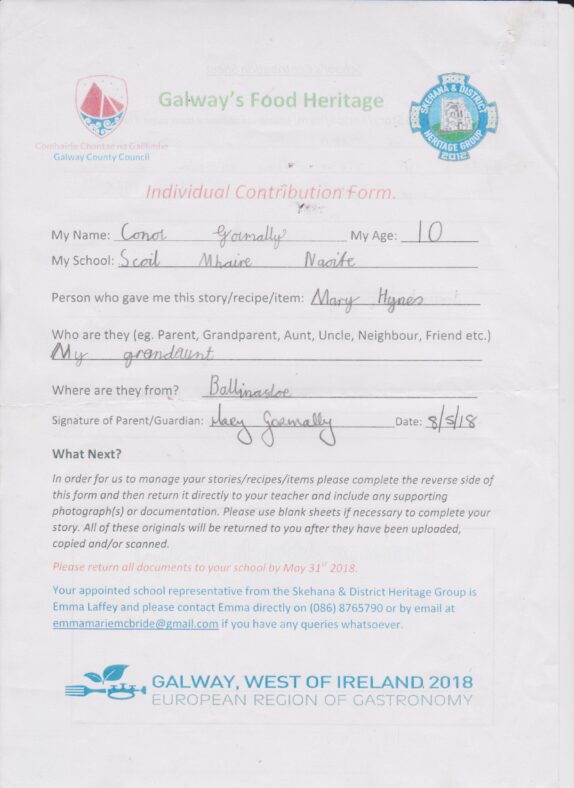 Galway's Food Heritage
Comhairle Chontae na Gaillimhe
Galway County Council
SKEHANA & DISTRICT
HERITAGE GROUP
2012
Individual Contribution Form.
My Name: Conor Gormally My Age: 10
My School: Scoil Mhuire Naofe
Person who gave me this story/recipe/item: Mary Hynes
Who are they (eg. Parent, Grandparent, Aunt, Uncle, Neighbour, Friend etc.)
My grandaunt
Where are they from? Ballinasloe
Signature of Parent/Guardian: Gormally Date: 8/5/18
What Next?
In order for us to manage your stories/recipes/items please complete the reverse side of
this form and then return it directly to your teacher and include any supporting
photograph(s) or documentation. Please use blank sheets if necessary to complete your
story. All of these originals will be returned to you after they have been uploaded,
copied and/or scanned.
Please return all documents to your school by May 31st 2018.
Your appointed school representative from the Skehana & District Heritage Group is
Emma Laffey and please contact Emma directly on (086) 8765790 or by email at
emmamariemcbride@gmail.com if you have any queries whatsoever.
GALWAY, WEST OF IRELAND 2018
EUROPEAN REGION OF GASTRONOMY